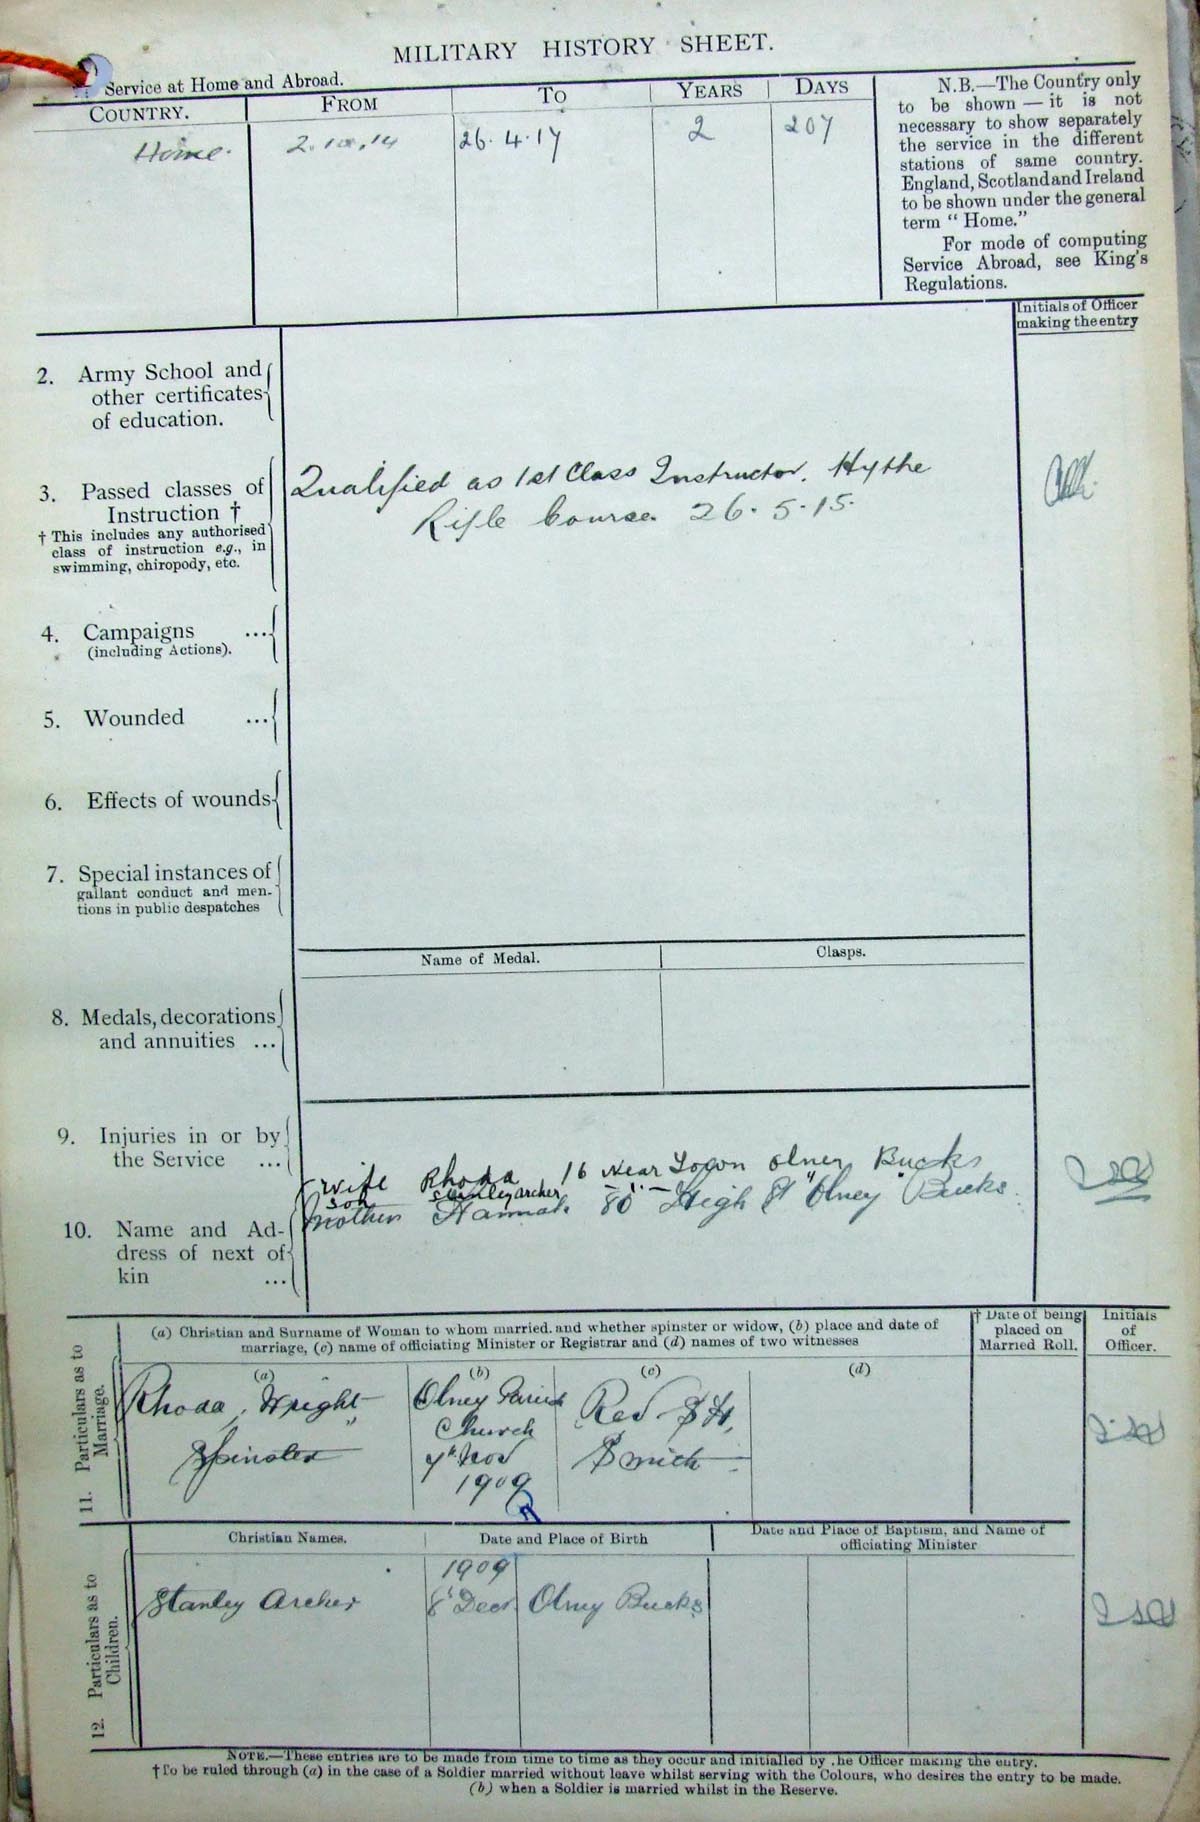 MILITARY HISTORY SHEET.
Service at Home and Abroad.
COUNTRY. FROM TO YEARS DAYS
Home. 2.10.14 26.4.17 2 207
N.B.—The Country only
to be shown — it is not
necessary to show separately
the service in the different
stations of same country.
England, Scotland and Ireland
to be shown under the general
term " Home."
For mode of computing
Service Abroad, see King's
Regulations.
Initials of Officer
making the entry
2. Army School and
other certificates
of education.
3. Passed classes of
Instruction †
† This includes any authorised
class of instruction e.g., in
swimming, chiropody, etc.
Qualified as 1st Class Instructor. Hythe
Rifle Course. 26.5.15.
4. Campaigns ...
(including Actions).
5. Wounded ...
6. Effects of wounds
7. Special instances of
gallant conduct and men-
tions in public despatches
Name of Medal. Clasps.
8. Medals, decorations
and annuities ...
9. Injuries in or by
the Service ...
10. Name and Ad-
dress of next of
kin ...
Wife Rhoda 16 Near Olney Bucks
Son Stanley Archer
Mother Hannah 80 High St Olney Bucks
11. Particulars as to
Marriage.
(a) Christian and Surname of Woman to whom married, and whether spinster or widow, (b) place and date of
marriage, (c) name of officiating Minister or Registrar and (d) names of two witnesses
† Date of being
placed on
Married Roll.
Initials
of
Officer.
(a) (b) (c) (d)
Rhoda Wright
Spinster
Olney Parish
Church
7th Nov
1909
Rev S H,
Smith
12. Particulars as to
Children.
Christian Names. Date and Place of Birth
Date and Place of Baptism, and Name of
officiating Minister
1909
Stanley Archer 8th Decr Olney Bucks
NOTE.—These entries are to be made from time to time as they occur and initialled by the Officer making the entry.
†To be ruled through (a) in the case of a Soldier married without leave whilst serving with the Colours, who desires the entry to be made.
(b) when a Soldier is married whilst in the Reserve.